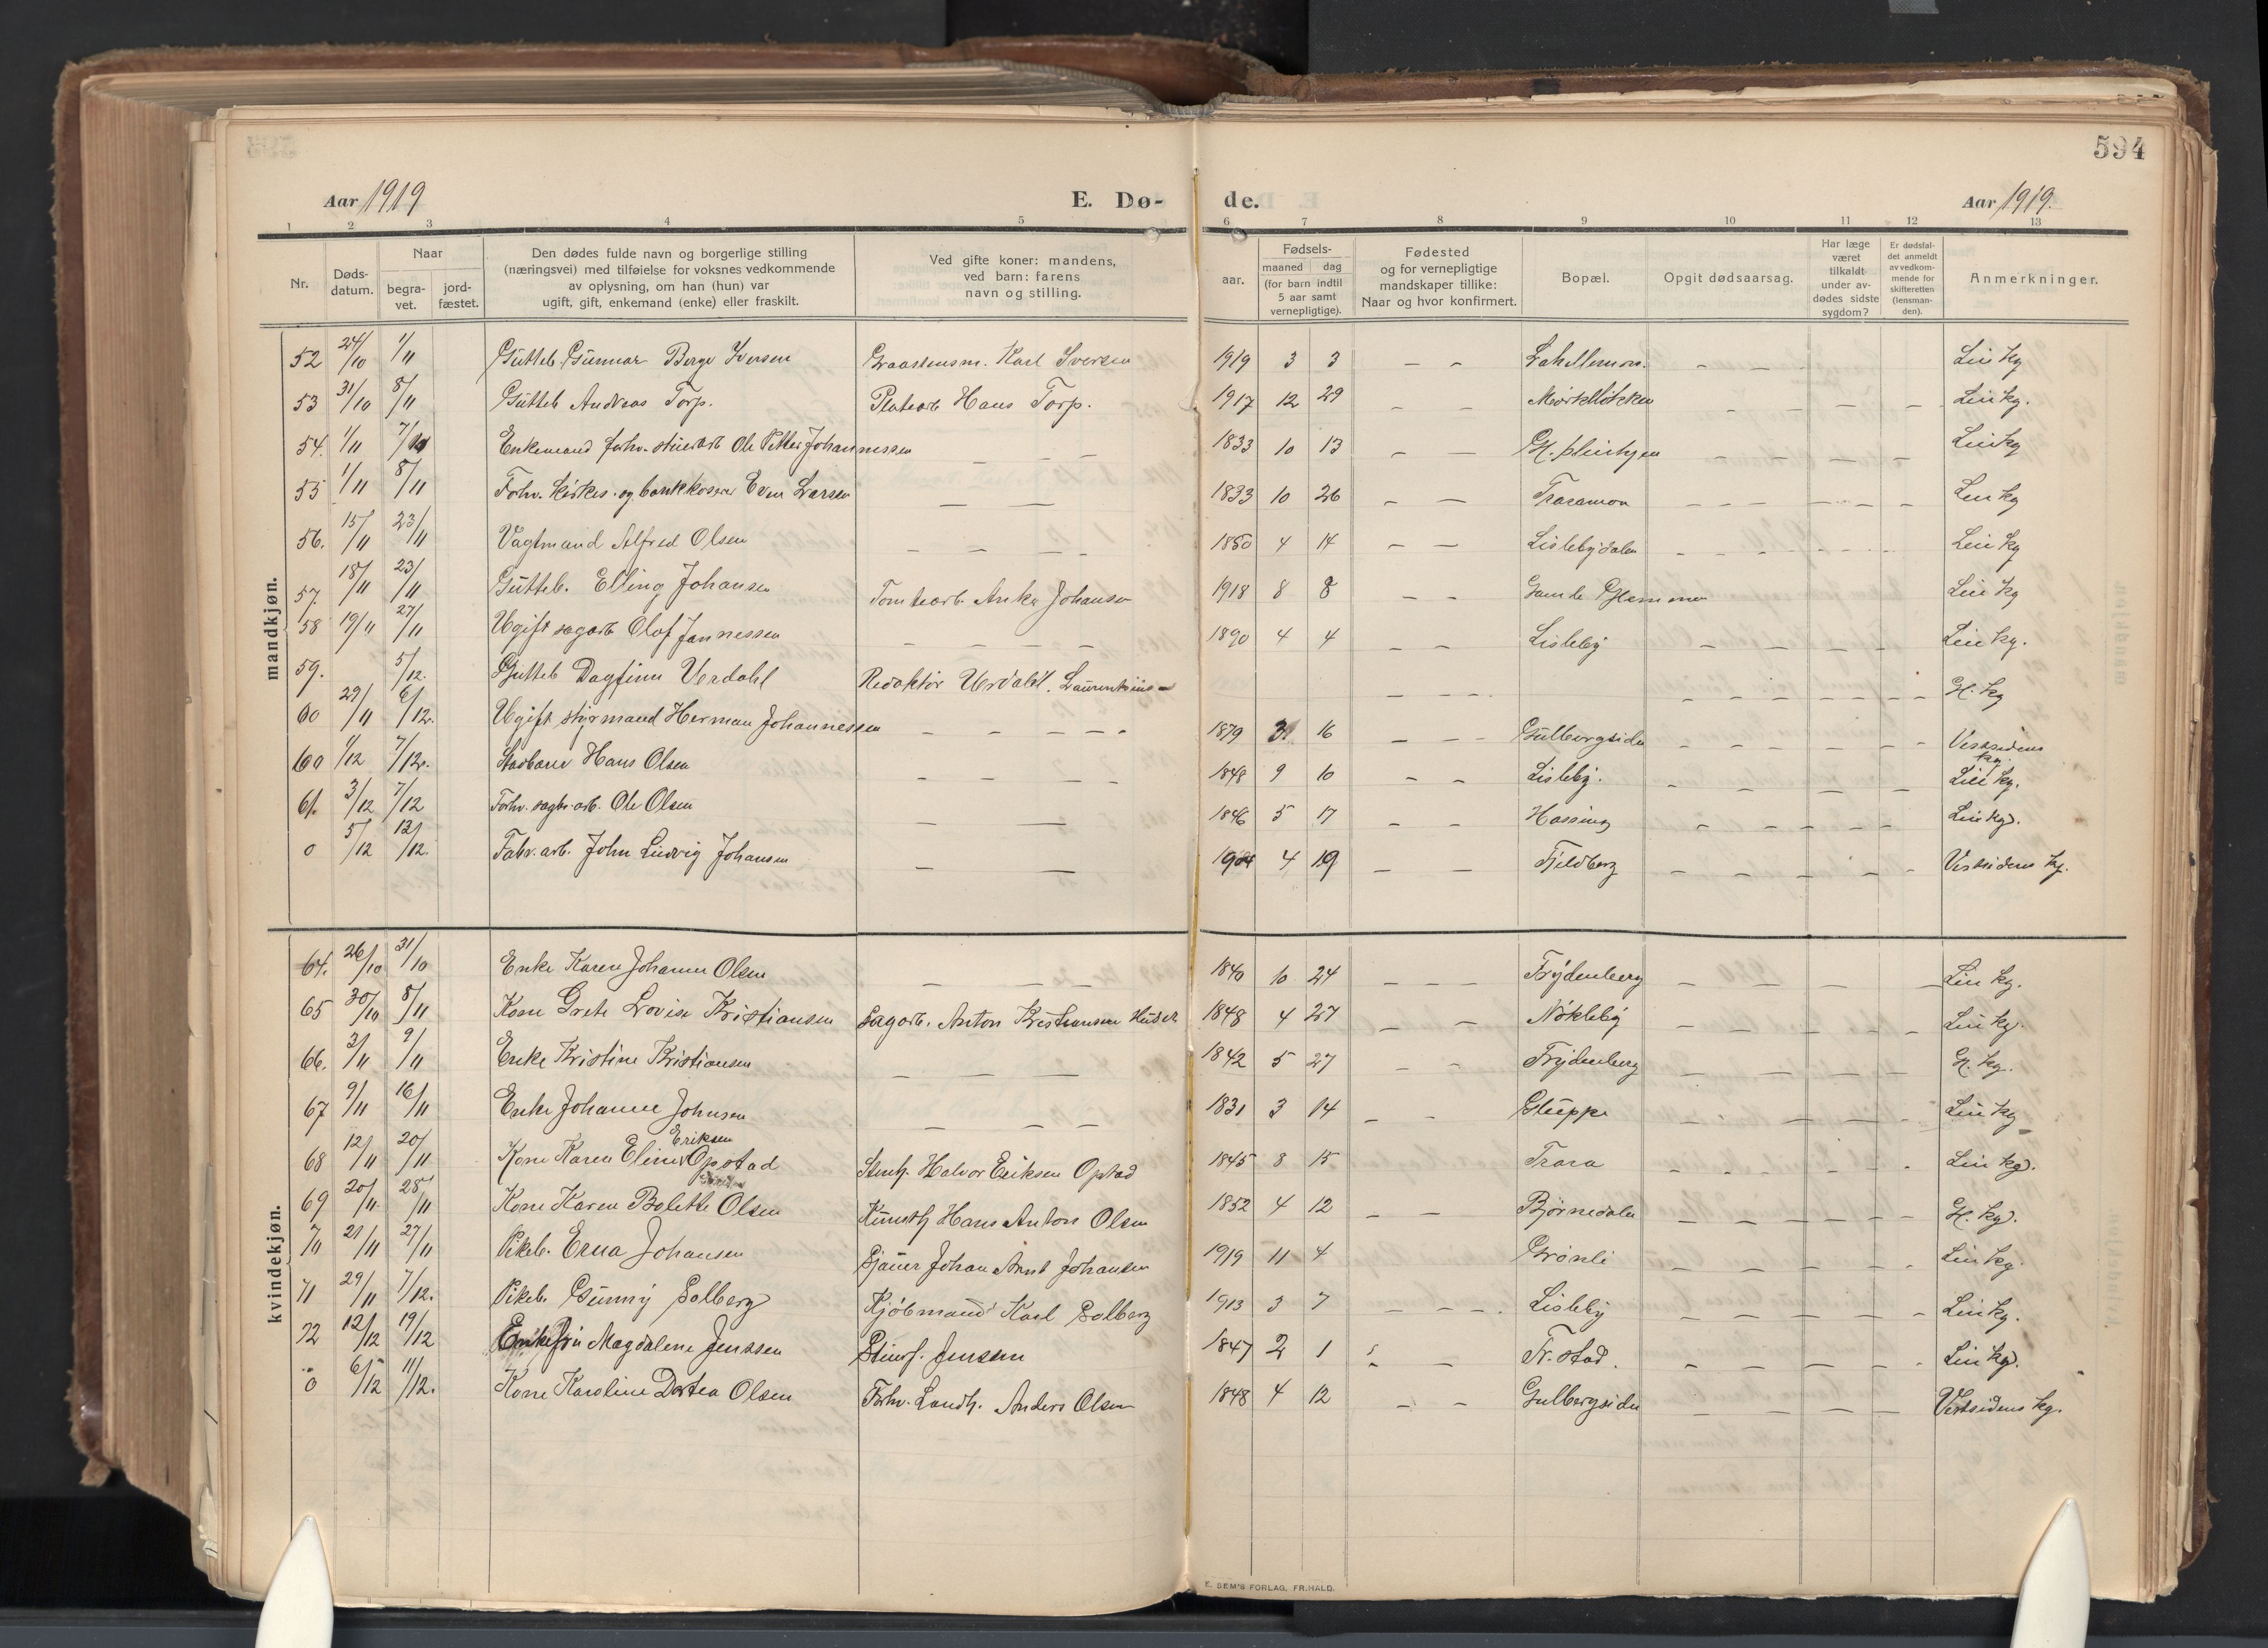 594
Aar 1919 E. Dø- de. Aar 1919.
1 2 3 4 5 6 7 8 9 10 11 12 13
Nr. Døds-datum. Naar begra-vet. jord-fæstet. Den dødes fulde navn og borgerlige stilling (næringsvei) med tilføielse for voksnes vedkommende av oplysning, om han (hun) var ugift, gift, enkemand (enke) eller fraskilt. Ved gifte koner: mandens, ved barn: farens navn og stilling. aar. Fødsels- maaned dag (for barn indtil 5 aar samt vernepligtige). Fødested og for vernepligtige mandskaper tillike: Naar og hvor konfirmert. Bopæl. Opgit dødsaarsag. Har læge været tilkaldt under av-dødes sidste sygdom? Er dødsfal-det anmeldt av vedkom-mende for skifteretten (lensman-den). Anmerkninger.
mandkjøn.
52 24/10 1/11 Gutteb. Gunnar Berge Iversen Karl Iversen 1919 3 3 - - Lei kg
53 31/10 8/11 Gutteb Andreas Torp. Platearb Hans Torp. 1917 12 29 - - Lei kg.
54. 1/11 7/11 Enkemand forhv. Ole Petter Johannessen - - - 1833 10 13 - - Lei kg
55 1/11 8/11 Forhv. kirkes. og bankkasserer Even Larsen - - 1833 10 26 - - Traramon Lei kg
56. 15/11 23/11 Vagtmand Alfred Olsen - - - - 1850 4 14 - - Lislebydalen Lei kg
57. 18/11 23/11 Gutteb. Elling Johansen Tomtearb. Anker Johansen 1918 8 8 - - Gamle Glemmen Lei kg
58 19/11 27/11 Ugift sagarb Olof Jannessen - - - - 1890 4 4 - - Lisleby Lei kg.
59. 5/12. Gutteb Dagfinn Verdahl Redaktør Verdahl. Laurentsius - - - - - Gl. kg
60 29/11 6/12. Ugift styrmand Herman Johannessen - - - - 1879 3 16 - - - Gulbergsiden Vestsidens kg.
60 1/12 7/12. Hans Olsen - - - - 1848 9 10 - - Lisleby. Lei kg.
61. 3/12 7/12 Forhv. sagbr. arb. Ole Olsen - - 1846 5 17 - - Hassing Lei kg.
0 5/12 12/12. Fabr. arb. John Ludvig Johansen - - 4 19 - - Fjeldberg Vestsidens kg.
kvindekjøn.
64. 26/10 31/10 Enke Karen Johanne Olsen - - - 1840 10 24 - - - Frydenberg Lei kg.
65 30/10 8/11 Kone Grete Lovise Kristiansen Sagarb. Anton Kristiansen 1848 4 27 - - Nøkleby Lei kg.
66. 3/11 9/11 Enke Kristine Kristiansen - - - 1842 5 27 - - Frydenberg Gl. kg.
67 9/11 16/11 Enke Johanne Johnsen - - - 1831 3 14 - - Gluppe Lei kg
Eriksen
68 12/11 20/11 Kone Karen Eline Opstad Stenh. Halvor Eriksen Opstad 1845 8 15 - - Trara Lei kg.
69 20/11 28/11 Kone Karen Bolette Olsen Hans Anton Olsen 1852 4 12 - - Bjørnedalen Gl. kg.
70 21/11 27/11 Pikeb. Erna Johansen Sjauer Johan Arnt Johansen 1919 11 4 Grønli Lei kg.
71 29/11 7/12. Pikeb. Gunny Solberg Kjøbmand Karl Solberg 1913 3 7 - - - Lisleby Lei kg.
72 12/12 19/12 Enkefru Magdalene Jenssen Jensen 1847 2 1 - - Fr. stad. Lei kg.
0 6/12 11/12. Kone Karoline Dortea Olsen Forhv. Landh. Anders Olsen 1848 4 12 - - Gulbergsiden Vestsidens kg.
E. SEM'S FORLAG, FR.HALD.